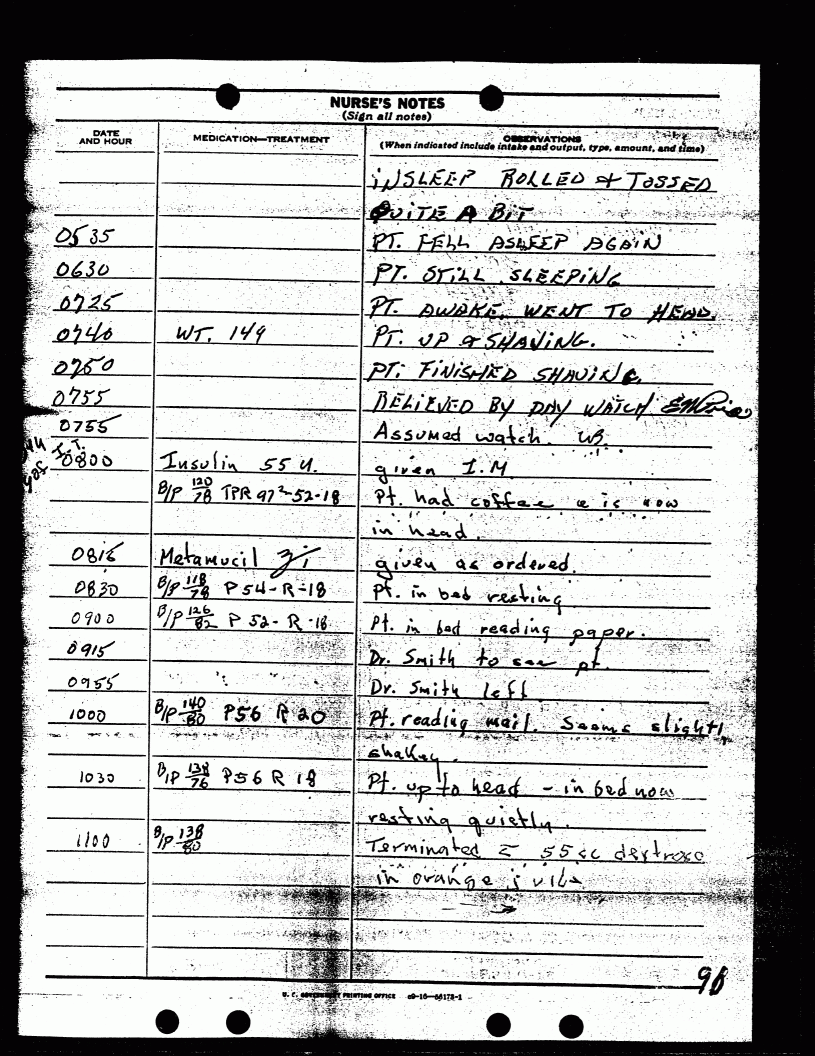 NURSE'S NOTES
(Sign all notes)
DATE AND HOUR MEDICATION—TREATMENT OBSERVATIONS
(When indicated include intake and output, type, amount, and time)
INSLEEP ROLLED & TOSSED
QUITE A BIT
0535 PT. FELL ASLEEP AGAIN
0630 PT. STILL SLEEPING
0725 PT. AWAKE, WENT TO HEAD.
0740 WT. 149 PT. UP & SHAVING.
0750 PT. FINISHED SHAVING.
0755 RELIEVED BY DAY WATCH
0755 Assumed watch. WB.
I.T.
0800 Insulin 55 u. given I.M
B/P 120/78 TPR 97²-52-18 Pt. had coffee & is now
in head.
0816 Metamucil ʒi given as ordered.
0830 B/P 118/78 P 54-R-18 Pt. in bed resting
0900 B/P 126/82 P 52-R-18 Pt. in bed reading paper.
0915 Dr. Smith to see pt.
0955 Dr. Smith left
1000 B/P 140/80 P56 R 20 Pt. reading mail. Seems slightly
shakey.
1030 B/P 138/76 P56 R 18 Pt. up to head - in bed now
resting quietly.
1100 B/P 138/80 Terminated c̄ 55cc dextrose
in orange juice
96
U. S. GOVERNMENT PRINTING OFFICE